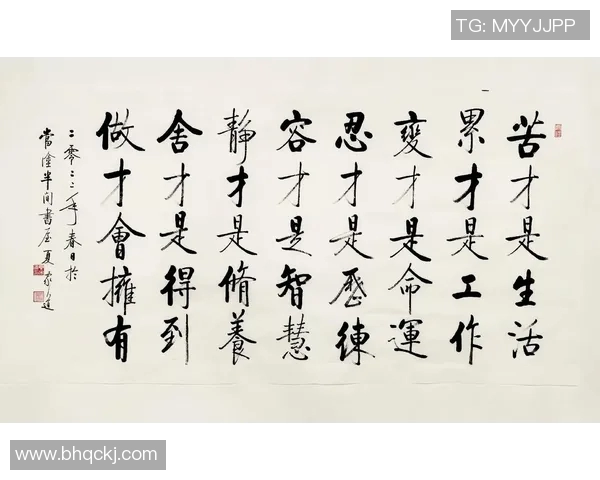 TG: MYYJJPP
苦才是生活
累才是工作
變才是命運
忍才是歷練
容才是智慧
靜才是脩養
舍才是得到
做才會擁有
二零二二年春日於
當塗半间書屋夏
www.bhqckj.com